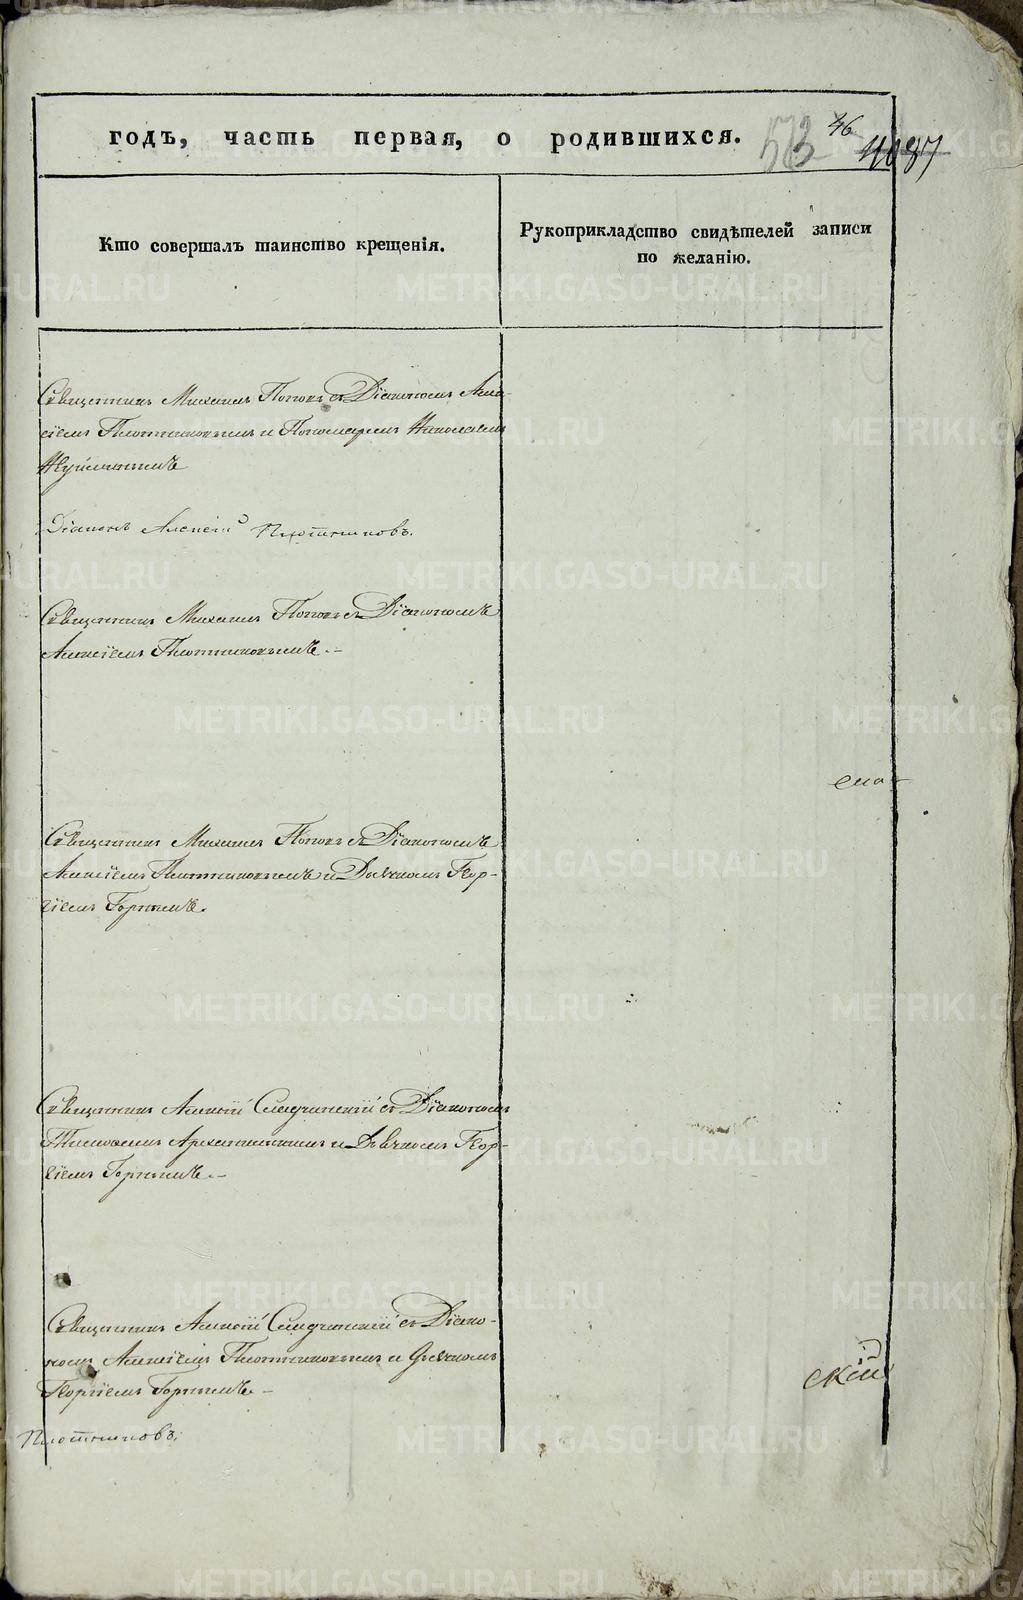 годъ, часть первая, о родившихся.
53 46
Кто совершалъ таинство крещенія.
Рукоприкладство свидѣтелей записи
по желанію.
Священникъ Михаилъ Поповъ съ Діакономъ Алек-
сіемъ Плотниковымъ и Пономаремъ Николаемъ
Діаконъ Алексій Плотниковъ.
Священникъ Михаилъ Поповъ съ Діакономъ
Алексіемъ Плотниковымъ.-
Священникъ Михаилъ Поповъ съ Діакономъ
Алексіемъ Плотниковымъ и Дьячкомъ Геор-
гіемъ Горнымъ.
Священникъ Алексій съ Діакономъ
и Дьячкомъ Геор-
гіемъ Горнымъ.-
Священникъ Алексій съ Діако-
номъ Алексіемъ Плотниковымъ и Дьячкомъ
Георгіемъ Горнымъ.-
скій
Плотниковъ.
METRIKI.GASO-URAL.RU